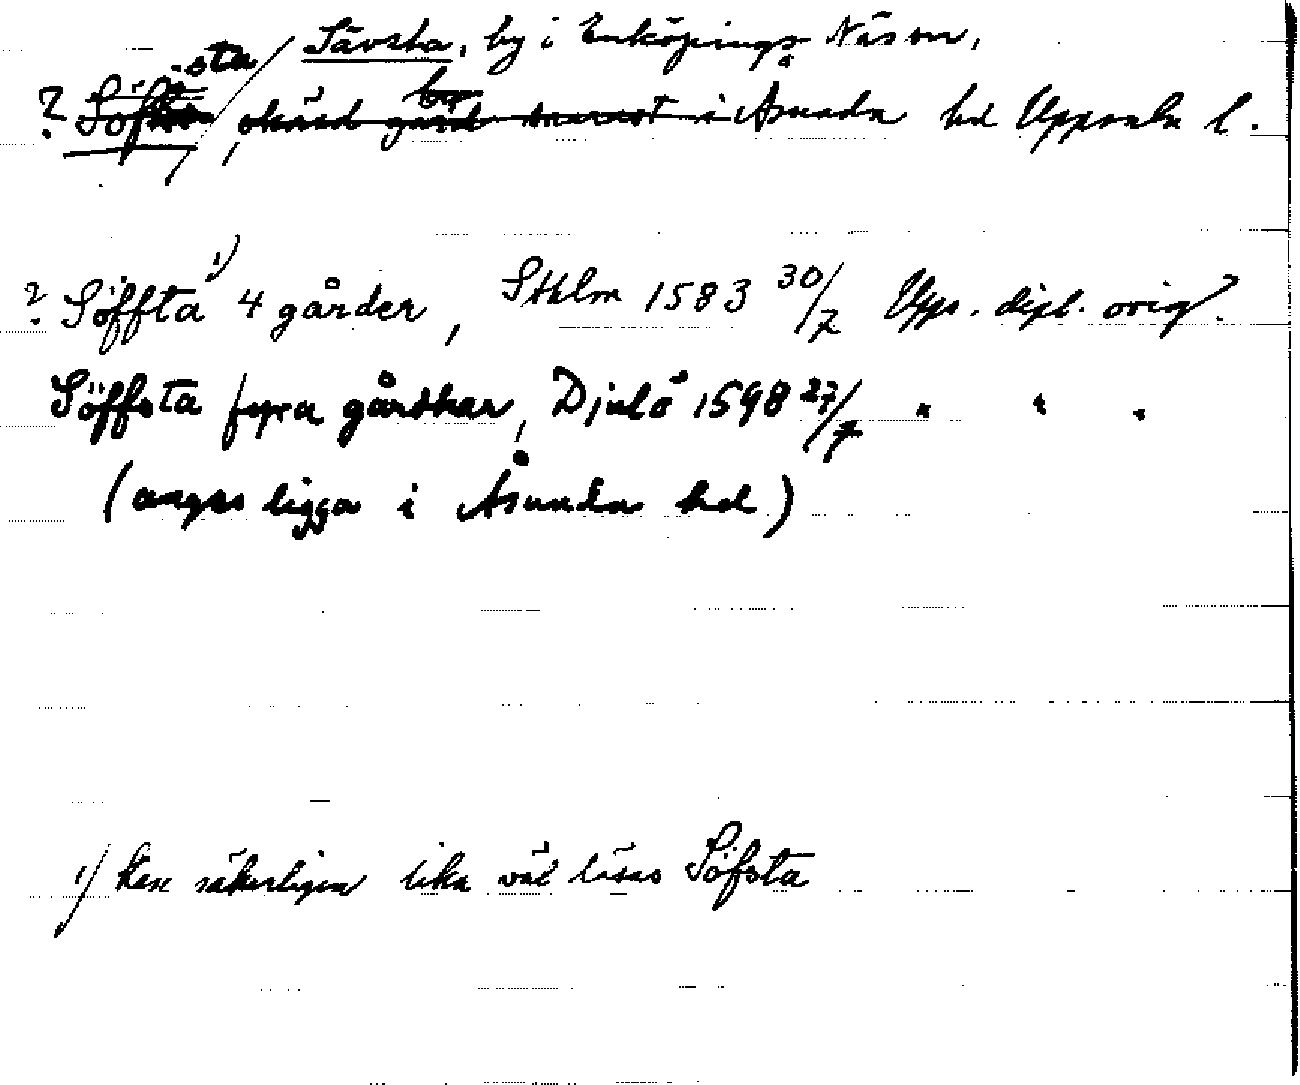 Sävsta, by i Enköpings Näs sn,
? Söfsta, okänd gård snarast i Åsunda hd Uppsala l.
? Söffta 1) 4 gårder, Sthlm 1583 30/7 Upps. dipl. orig?
Söffsta fyra gårdhar, Djulö 1598 27/7 " " "
(anges ligga i Åsunda hd)
1) Kan säkerligen lika väl läsas Söfsta